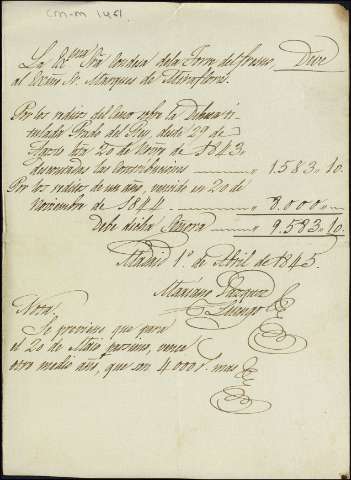 CM-M 1451
La Exma Sra Condesa de la Torre del Fresno Deve
al Exmo Sr. Marques de Miraflores.
Por los reditos del Censo sobre la Dehesa ti-
tulada Prado del Rey, desde 29 de
Agosto hta 20 de Novre de 1843.
descontadas las Contribuciones 1.583,,10.
Por los reditos de un año, vencido en 20 de
Noviembre de 1844. 8.000,,
Debe dicha Señora 9.583,,10.
Madrid 1º de Abril de 1845.
Mariano Vazquez
Luengo
Nota.
Se previene que para
el 20 de Mayo proximo, vence
otro medio año, que son 4000 r. mas